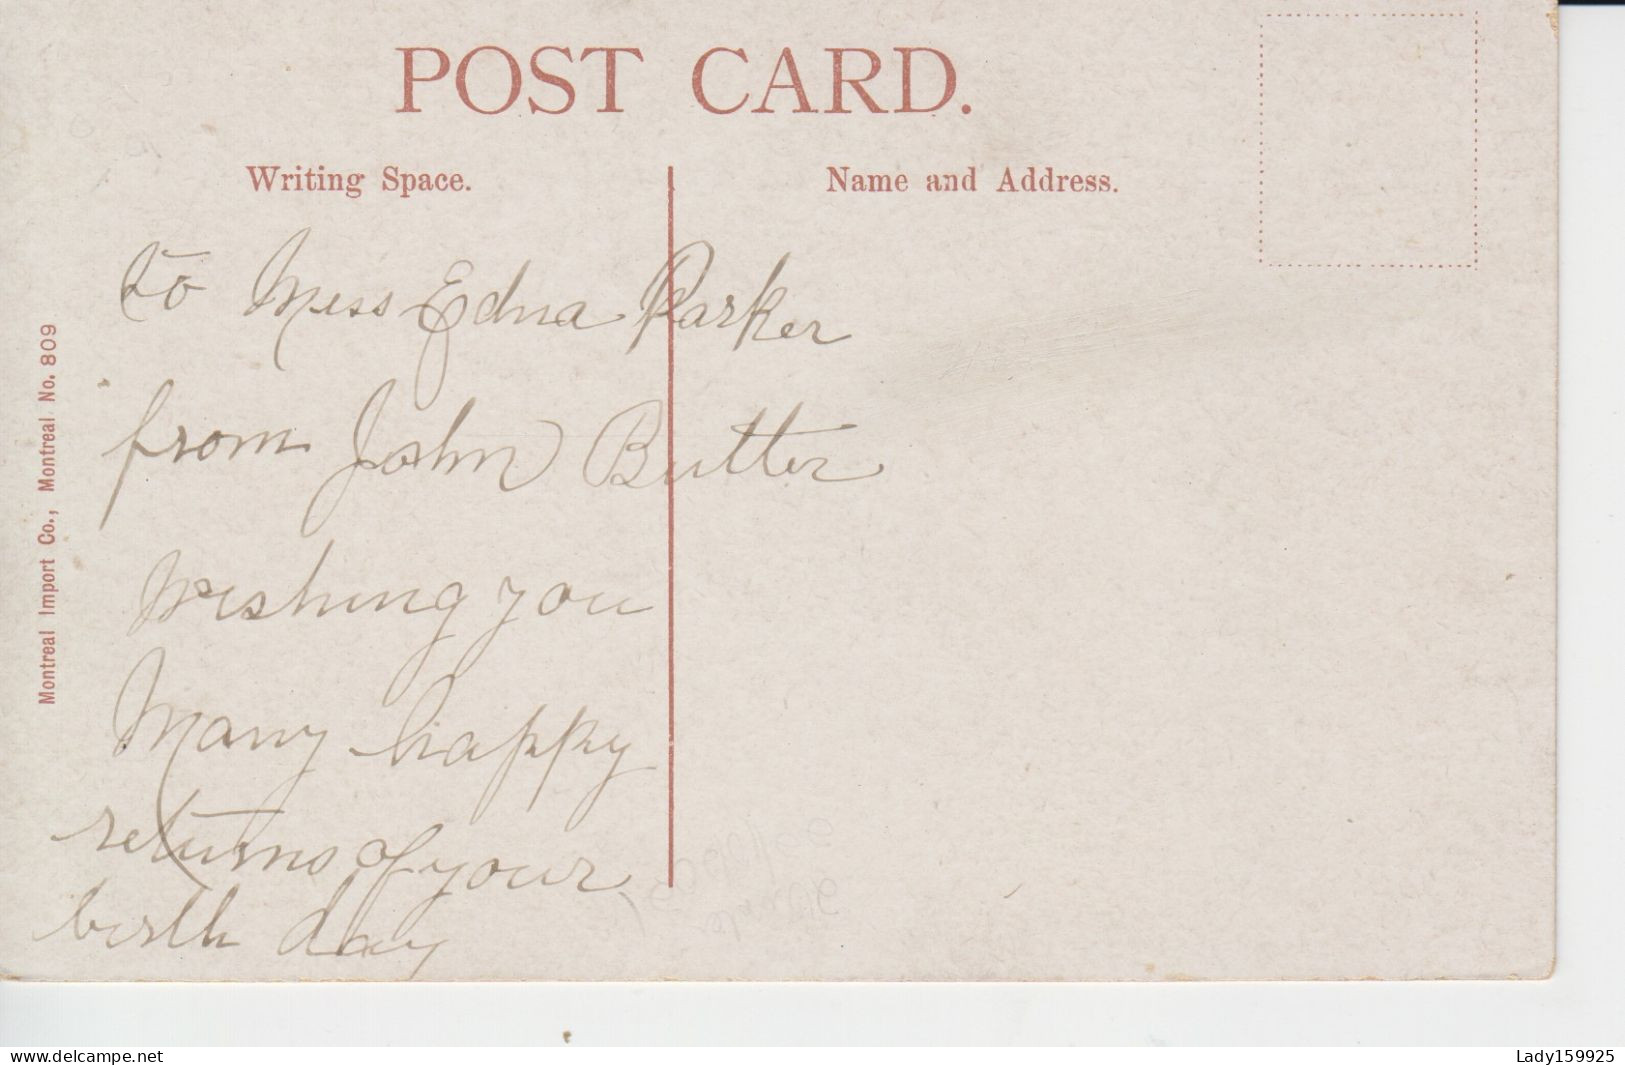 POST CARD.
Writing Space.
Name and Address.
to Miss Edna Parker
from John Butter
Wishing you
Many happy
returns of your
birth day
Montreal Import Co., Montreal No. 809
www.delcampe.net
Lady159925